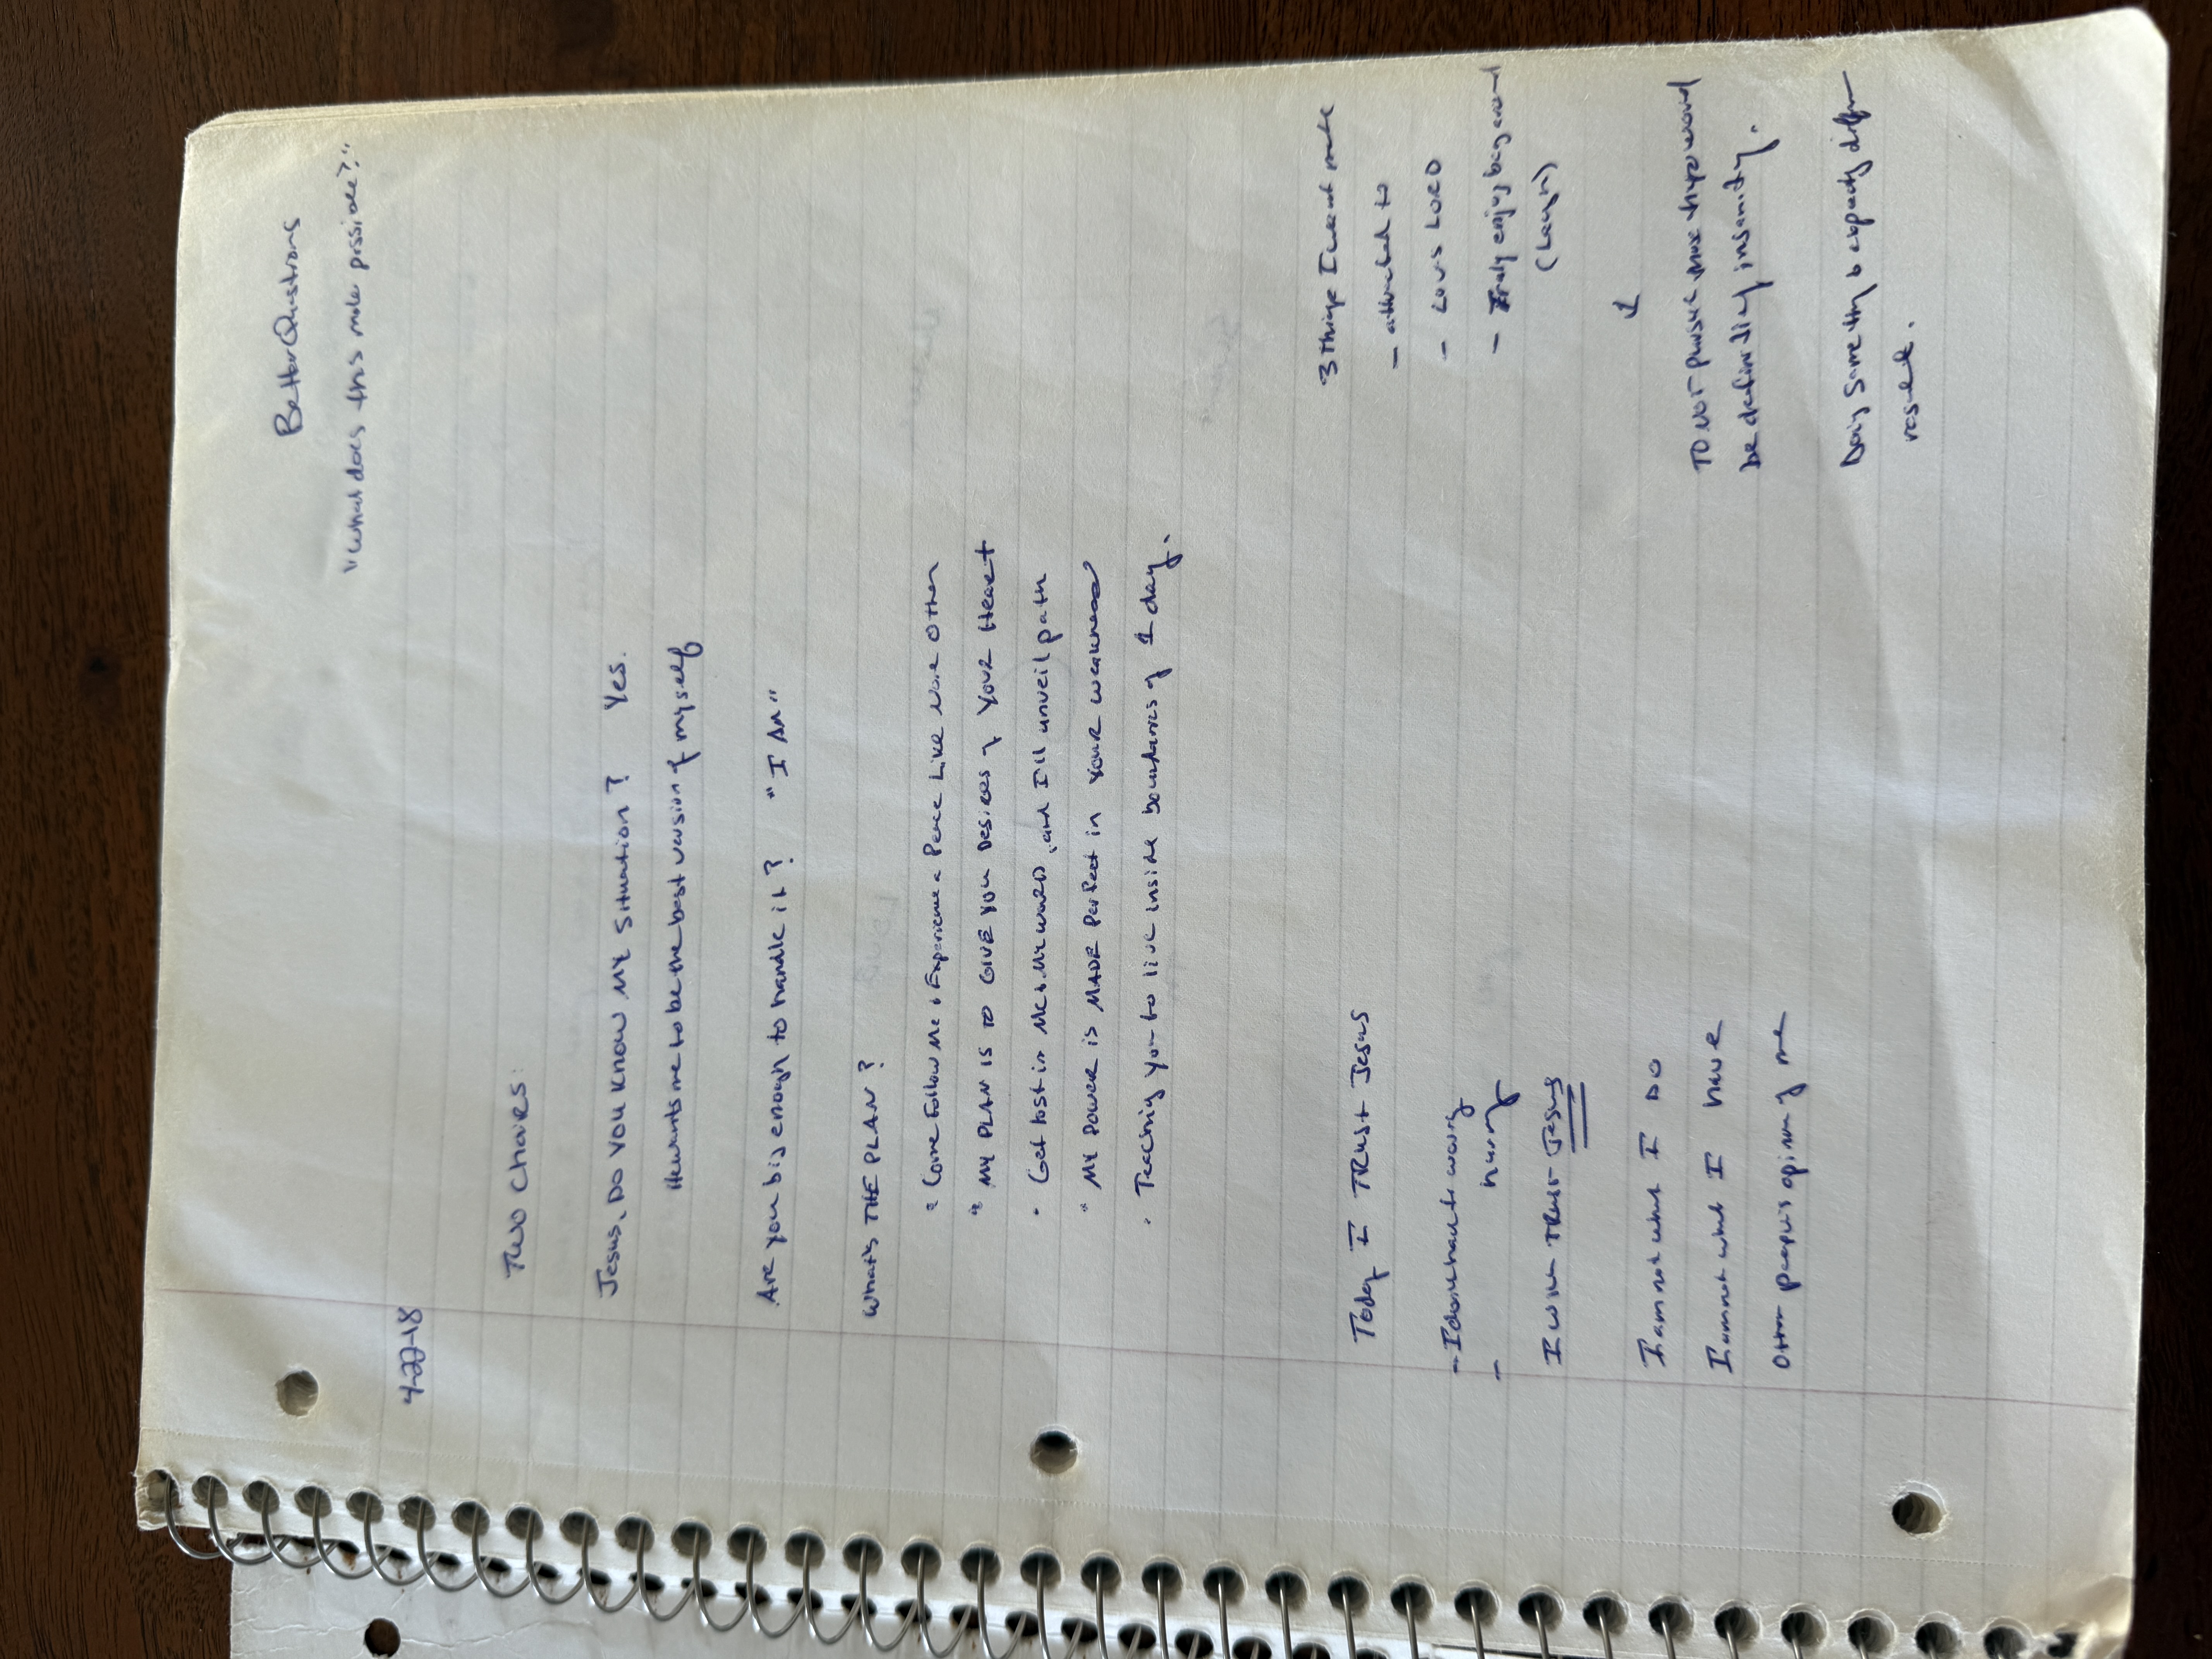 Better Questions
"What does this make possible?"
4-22-18
Two Chairs:
Jesus, Do You Know My Situation? Yes.
He wants me to be the best version of myself
Are you big enough to handle it? "I AM"
What's THE PLAN?
• Come Follow Me & Experience a Peace Like None Other
• MY PLAN IS TO GIVE YOU Desires of YOUR Heart
• Get lost in Me & My WORD, and I'll unveil path
• MY POWER is MADE Perfect in YOUR weakness
• Teaching you to live inside boundaries of 1 day.
Today I TRUST Jesus
- I don't have to worry
- hurry
I will TRUST Jesus
I am not what I DO
I am not what I have
Other people's opinion of me
3 things I want
- attracted to
- Loves LORD
- Truly enjoy being around
(Laugh)
↓
TO NOT pursue these would
be definition of insanity.
Doing same thing & expecting different
result.